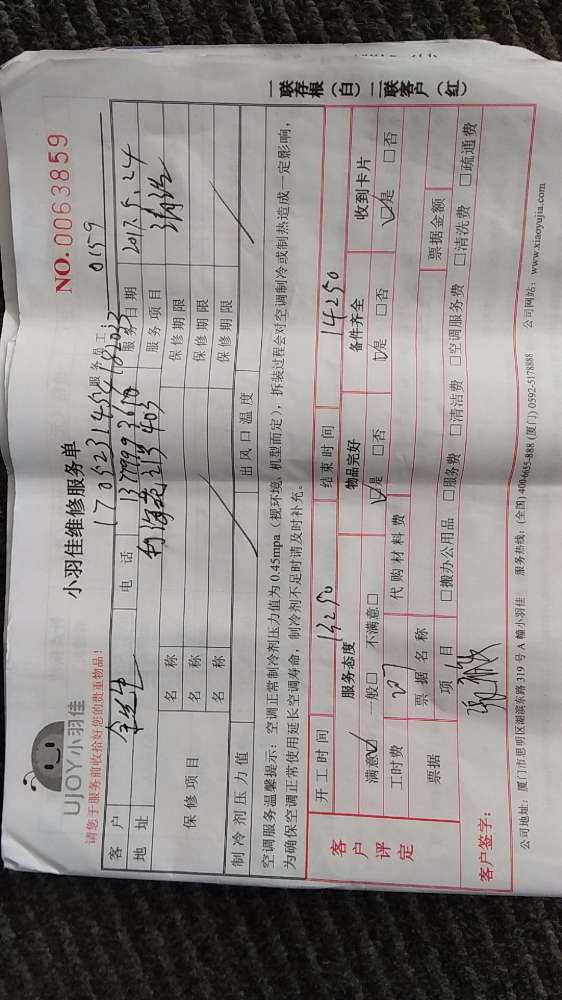 UJOY小羽佳
请您于服务前收拾好您的贵重物品!
小羽佳维修服务单
NO. 0063859
服务员工: 0159
客户 电话 服务日期 2017.5.24
地址 403 服务项目
保修项目 名称 保修期限
名称 保修期限
名称 保修期限
制冷剂压力值 出风口温度
空调服务温馨提示:空调正常制冷剂压力值为0.45mpa(视环境、机型而定),拆装过程会对空调制冷或制热造成一定影响,
为确保空调正常使用延长空调寿命,制冷剂不足时请及时补充。
一联存根(白) 二联客户(红)
客户评定
开工时间 13:50 结束时间 14:50
服务态度 物品完好 备件齐全 收到卡片
满意☑ 一般□ 不满意□ ☑是 □否 ☑是 □否 ☑是 □否
工时费 代购材料费
票据 票据名称 票据金额
项目 □搬办公用品 □服务费 □清洁费 □空调服务费 □清洗费 □疏通费
客户签字:
公司地址:厦门市思明区湖滨东路319号A幢小羽佳 服务热线:(全国)400-6655-888 (厦门) 0592-5178888 公司网站:www.xiaoyujia.com